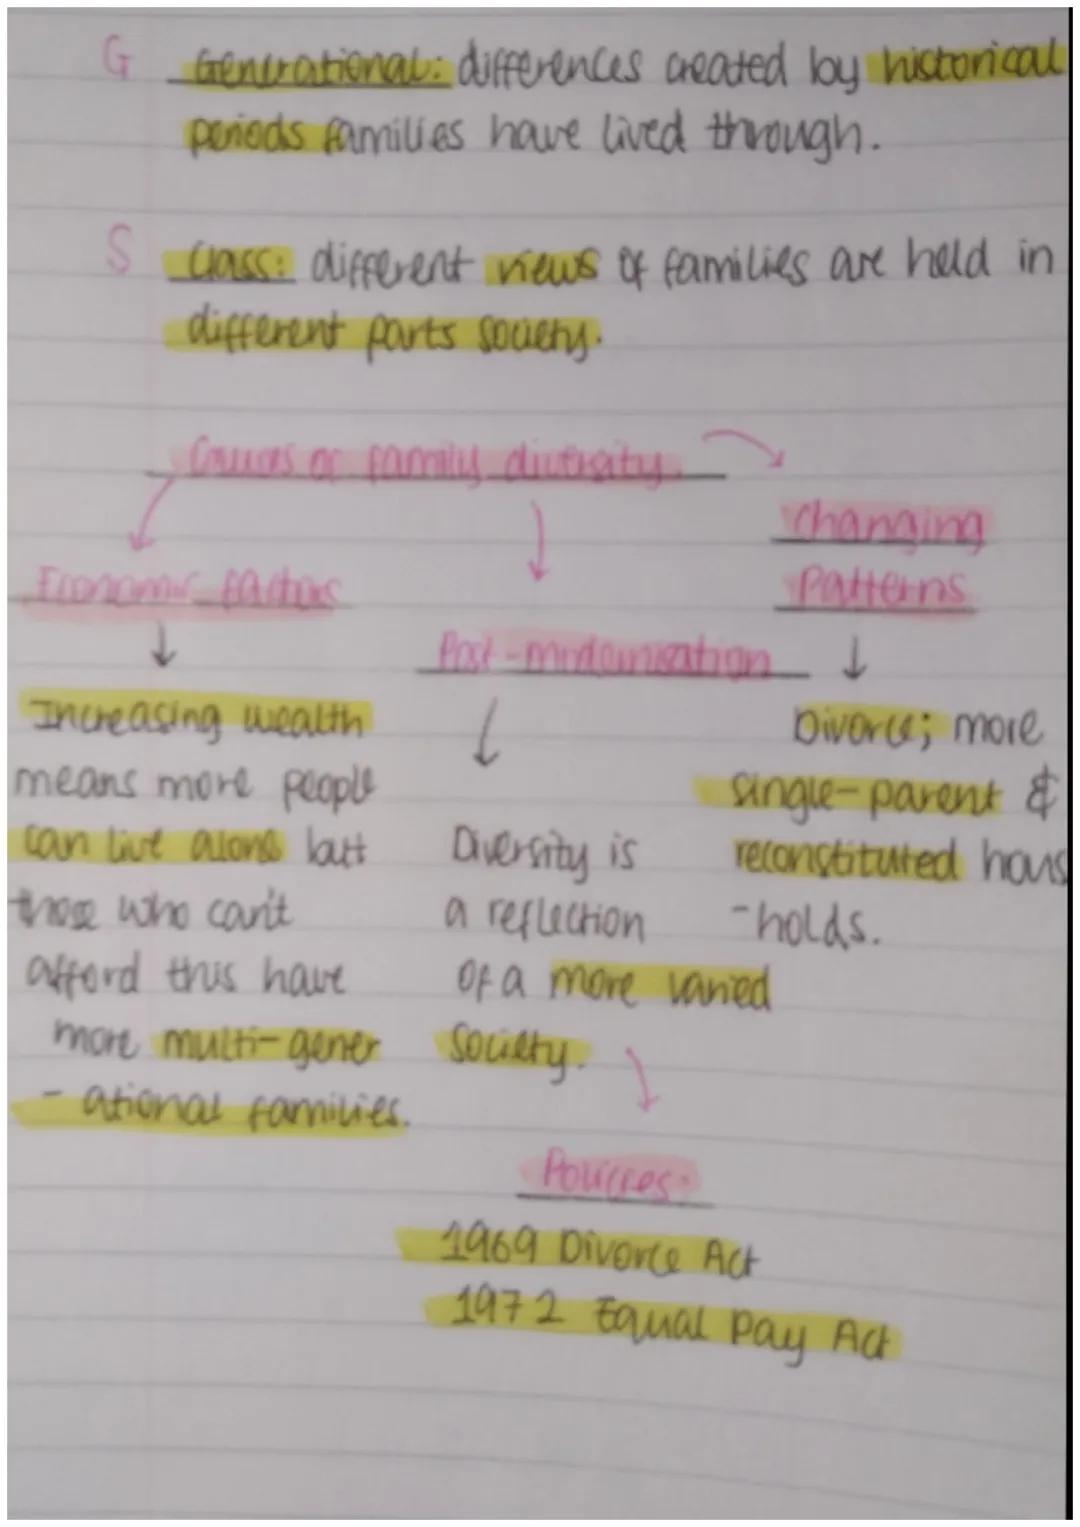 G Generational: differences created by historical
periods families have lived through.
S Class: different views of families are held in
different parts society.
Causes of family diversity
Economic factors
Increasing wealth
means more people
can live alone but
those who can't
afford this have
more multi-gener
-ational families.
Post-modernisation
Diversity is
a reflection
of a more varied
society.
Changing
Patterns
Divorce; more
single-parent &
reconstituted hous
-holds.
Policies:
1969 Divorce Act
1972 Equal Pay Act